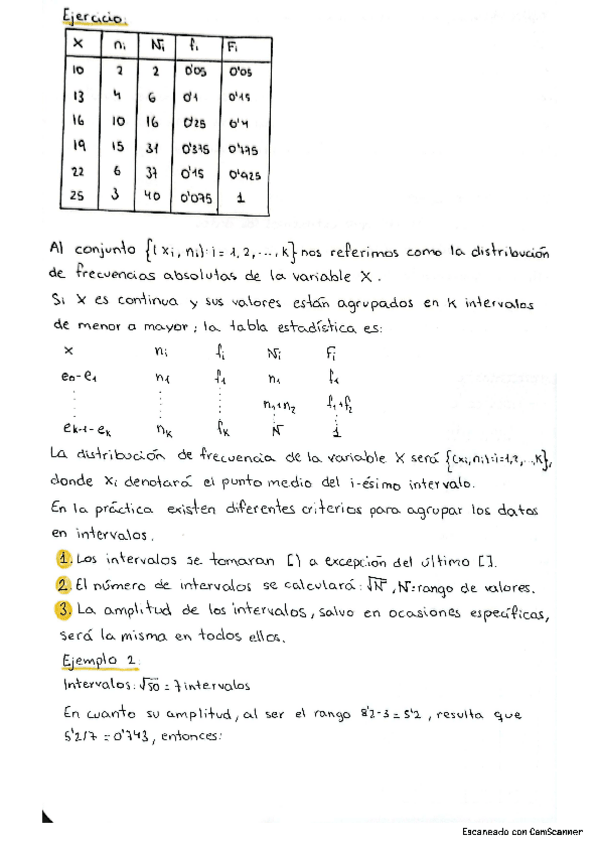 Ejercicio:
X ni Ni fi Fi
10 2 2 0'05 0'05
13 4 6 0'1 0'15
16 10 16 0'25 0'4
19 15 31 0'375 0'775
22 6 37 0'15 0'925
25 3 40 0'075 1
Al conjunto {(xi, ni): i = 1, 2, ..., k} nos referimos como la distribución
de frecuencias absolutas de la variable X.
Si X es continua y sus valores están agrupados en k intervalos
de menor a mayor; la tabla estadística es:
X ni fi Ni Fi
e0-e1 n1 f1 n1 f1
n1+n2 f1+f2
ek-1-ek nk fk N 1
La distribución de frecuencia de la variable X será {(xi,ni):i=1,2,..,k},
donde xi denotará el punto medio del i-ésimo intervalo.
En la práctica existen diferentes criterios para agrupar los datos
en intervalos.
1. Los intervalos se tomaran [) a excepción del último [].
2. El número de intervalos se calculará: √N, N=rango de valores.
3. La amplitud de los intervalos, salvo en ocasiones específicas,
será la misma en todos ellos.
Ejemplo 2.
Intervalos: √50 = 7 intervalos
En cuanto su amplitud, al ser el rango 8'2-3=5'2, resulta que
5'2/7 = 0'743, entonces:
Escaneado con CamScanner